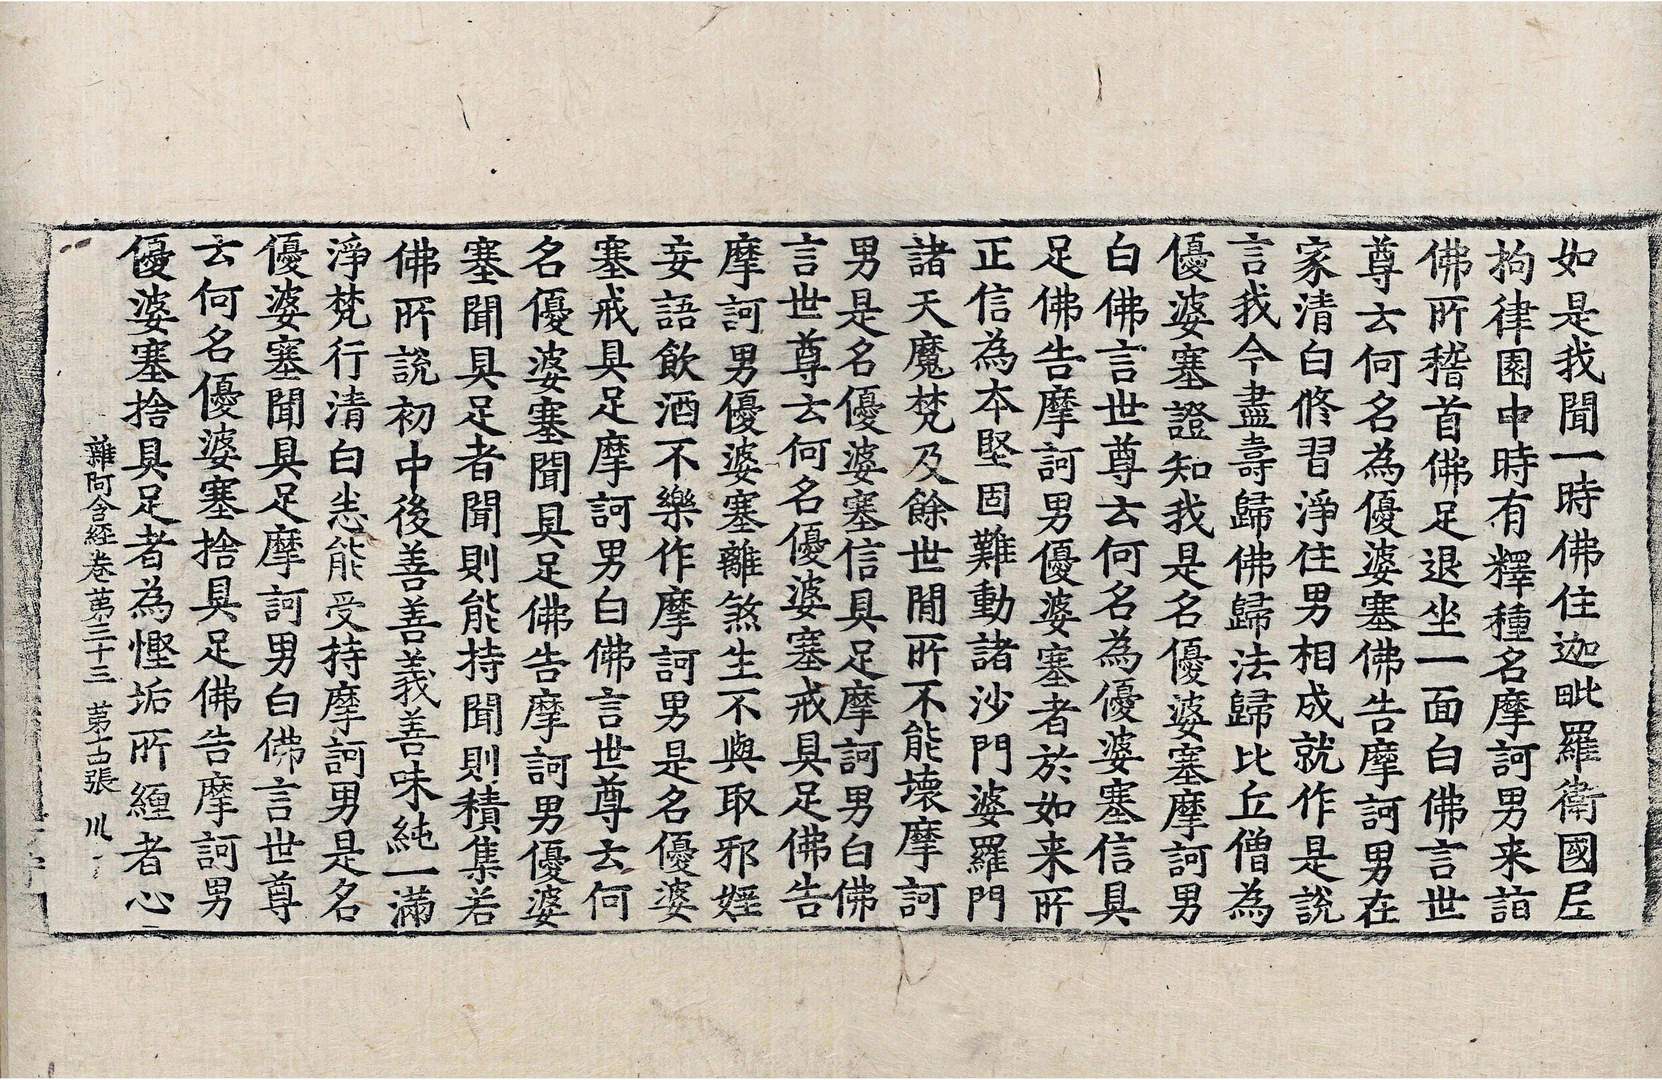 如是我聞一時佛住迦毗羅衛國尼
拘律園中時有釋種名摩訶男来詣
佛所稽首佛足退坐一面白佛言世
尊云何名為優婆塞佛告摩訶男在
家清白修習淨住男相成就作是說
言我今盡壽歸佛歸法歸比丘僧為
優婆塞證知我是名優婆塞摩訶男
白佛言世尊云何名為優婆塞信具
足佛告摩訶男優婆塞者於如来所
正信為本堅固難動諸沙門婆羅門
諸天魔梵及餘世間所不能壞摩訶
男是名優婆塞信具足摩訶男白佛
言世尊云何名優婆塞戒具足佛告
摩訶男優婆塞離煞生不與取邪婬
妄語飲酒不樂作摩訶男是名優婆
塞戒具足摩訶男白佛言世尊云何
名優婆塞聞具足佛告摩訶男優婆
塞聞具足者聞則能持聞則積集若
佛所說初中後善善義善味純一滿
淨梵行清白悉能受持摩訶男是名
優婆塞聞具足摩訶男白佛言世尊
云何名優婆塞捨具足佛告摩訶男
優婆塞捨具足者為慳垢所纏者心
雜阿含經卷苐三十三 苐十四張 川